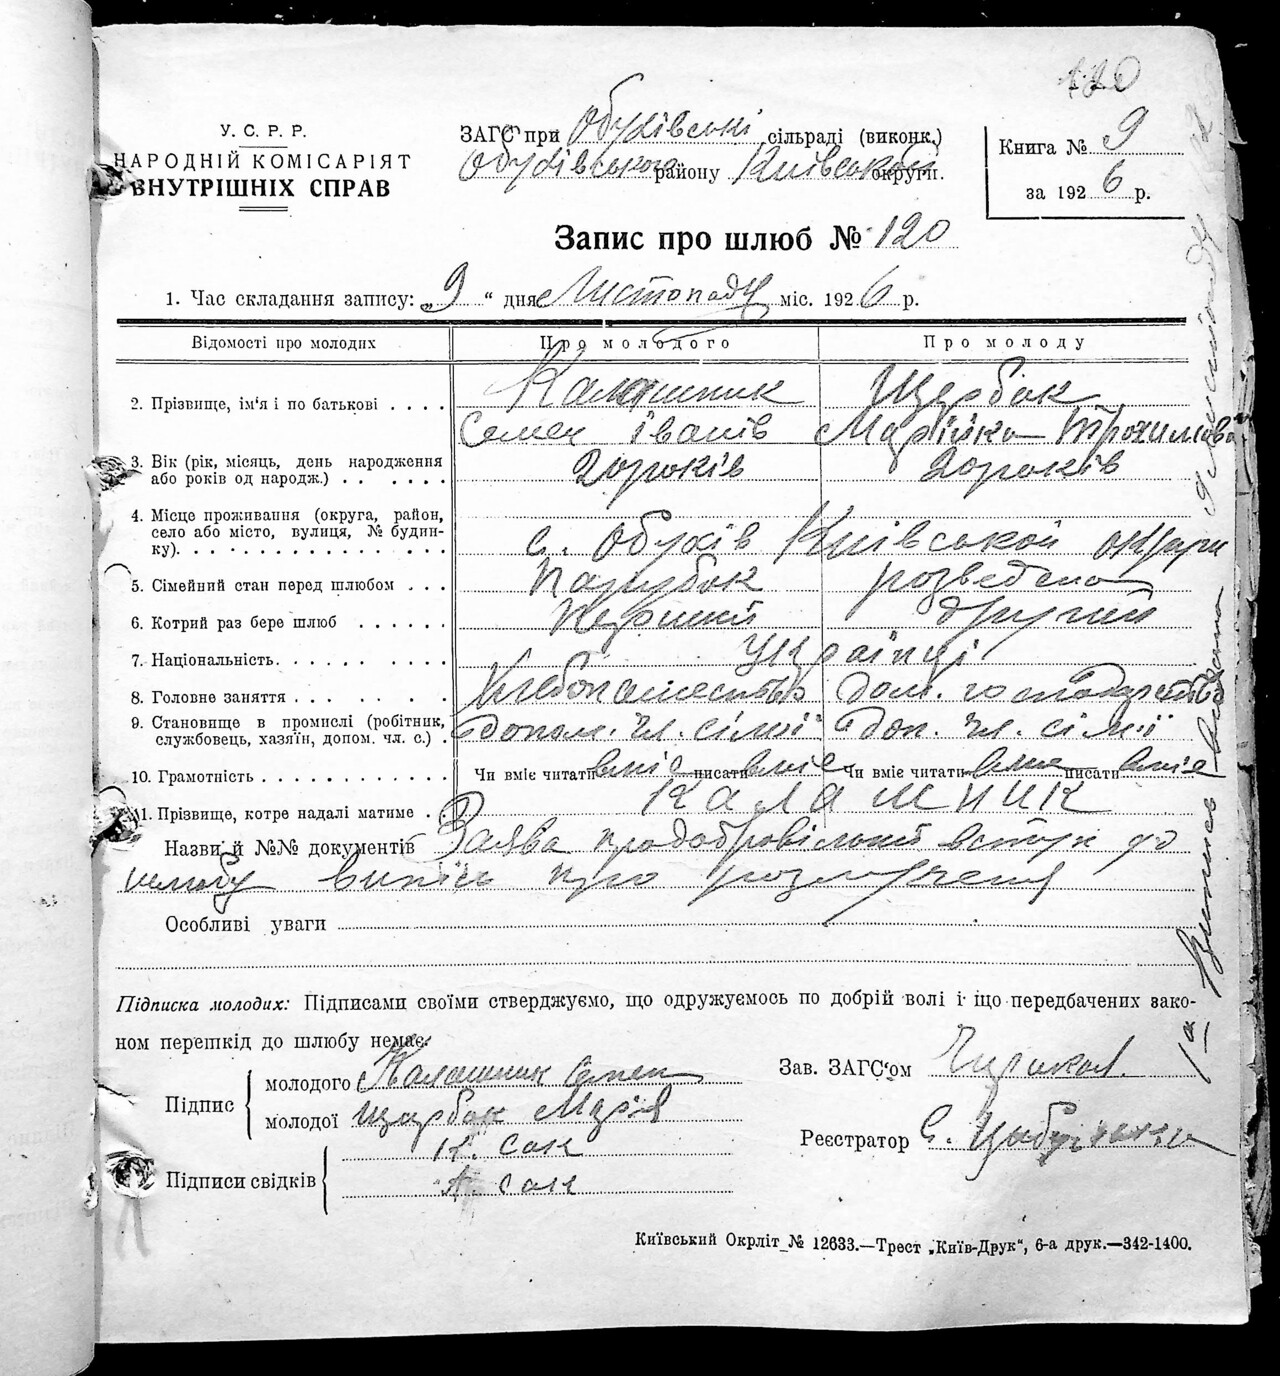 120
У. С. Р. Р.
НАРОДНІЙ КОМІСАРІЯТ
ВНУТРІШНІХ СПРАВ
ЗАГС при Обухівські сільраді (виконк.)
Обухівського району Київської округи.
Книга № 9
за 1926 р.
Запис про шлюб № 120
1. Час складання запису: „9 “ дня Листопаду міс. 1926 р.
Відомості про молодих Про молодого Про молоду
2. Прізвище, ім'я і по батькові . . . . Калашник Щербак
Семен Іванів Марійка Трохимова
3. Вік (рік, місяць, день народження
або років од народж.) . . . . . . 20 років 20 років
4. Місце проживання (округа, район,
село або місто, вулиця, № будин-
ку). . . . . . . . . . . . . . . . с. Обухів Київської округи
5. Сімейний стан перед шлюбом . . . Парубок розведена
6. Котрий раз бере шлюб . . . . . . Перший другий
7. Національність. . . . . . . . . . Українці
8. Головне заняття . . . . . . . . . Хлебопашество Дом. господарство
9. Становище в промислі (робітник,
службовець, хазяїн, допом. чл. с.) . допом. чл. сімїї доп. чл. сімії
10. Грамотність . . . . . . . . . . . . Чи вміє читати вміє писати вміє Чи вміє читати вміє писати вміє
11. Прізвище, котре надалі матиме . . Калашник
Назви й №№ документів Заява про добровільний вступ до
шлюбу випись про розлучення
Особливі уваги
Підписка молодих: Підписами своїми стверджуємо, що одружуємось по добрій волі і що передбачених зако-
ном перешкід до шлюбу немає.
Підпис
молодого Калашник Семен
молодої Щарбак Марія
Підписи свідків
К. Сак
А. Сак
Зав. ЗАГС'ом
Реєстратор С.
1а Випись видана 9 Листопаду
Київський Окрліт № 12633.—Трест „Київ-Друк“, 6-а друк.—342-1400.